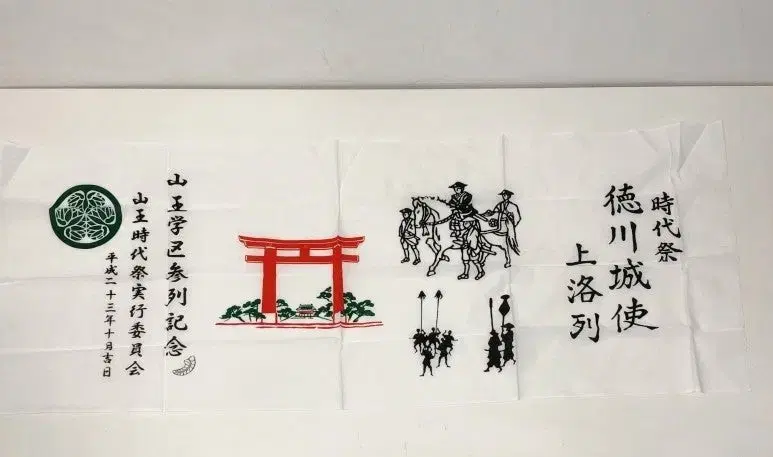 時代祭
徳川城使
上洛列
山王学区参列記念
山王時代祭実行委員会
平成二十三年十月吉日